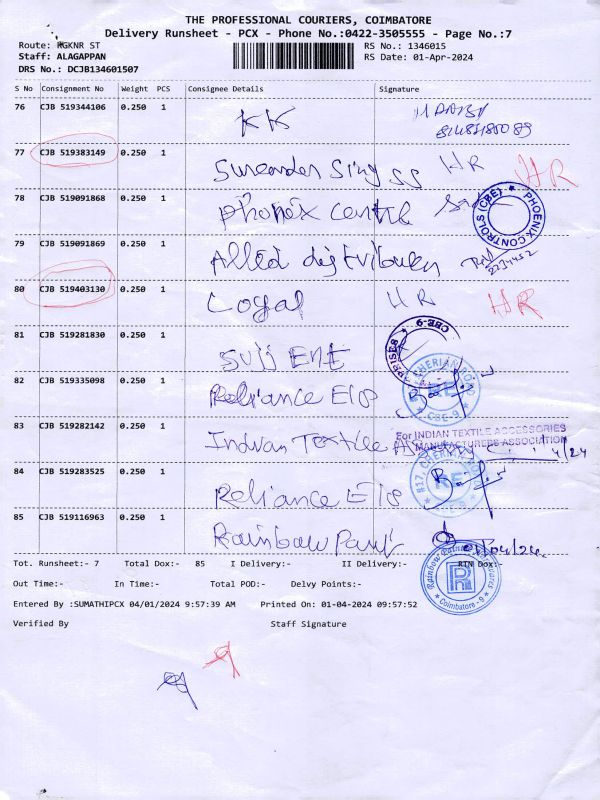 THE PROFESSIONAL COURIERS, COIMBATORE
Delivery Runsheet - PCX - Phone No.:0422-3505555 - Page No.:7
Route: RGKNR ST RS No.: 1346015
Staff: ALAGAPPAN RS Date: 01-Apr-2024
DRS No.: DCJB134601507
S No Consignment No Weight PCS Consignee Details Signature
76 CJB 519344106 0.250 1 KK
77 CJB 519383149 0.250 1 Surender Sing SS HR HR
78 CJB 519091868 0.250 1 Phonex Centre
PHOENIX CONTROLS (CBE)
79 CJB 519091869 0.250 1 Allied distributer
80 CJB 519403130 0.250 1 Logal HR HR
81 CJB 519281830 0.250 1 Sujj Ent
CBE-9
82 CJB 519335098 0.250 1 Reliance Ele
CHERIAN ROAD CBE-9
83 CJB 519282142 0.250 1 Indian Textile
For INDIAN TEXTILE ACCESSORIES
MANUFACTURERS ASSOCIATION
84 CJB 519283525 0.250 1 Reliance Ele
RE
85 CJB 519116963 0.250 1 Rainbow Paint
Tot. Runsheet:- 7 Total Dox:- 85 I Delivery:- II Delivery:- RTN Dox:-
Out Time:- In Time:- Total POD:- Delvy Points:-
Coimbatore - 9
Entered By :SUMATHIPCX 04/01/2024 9:57:39 AM Printed On: 01-04-2024 09:57:52
Verified By Staff Signature